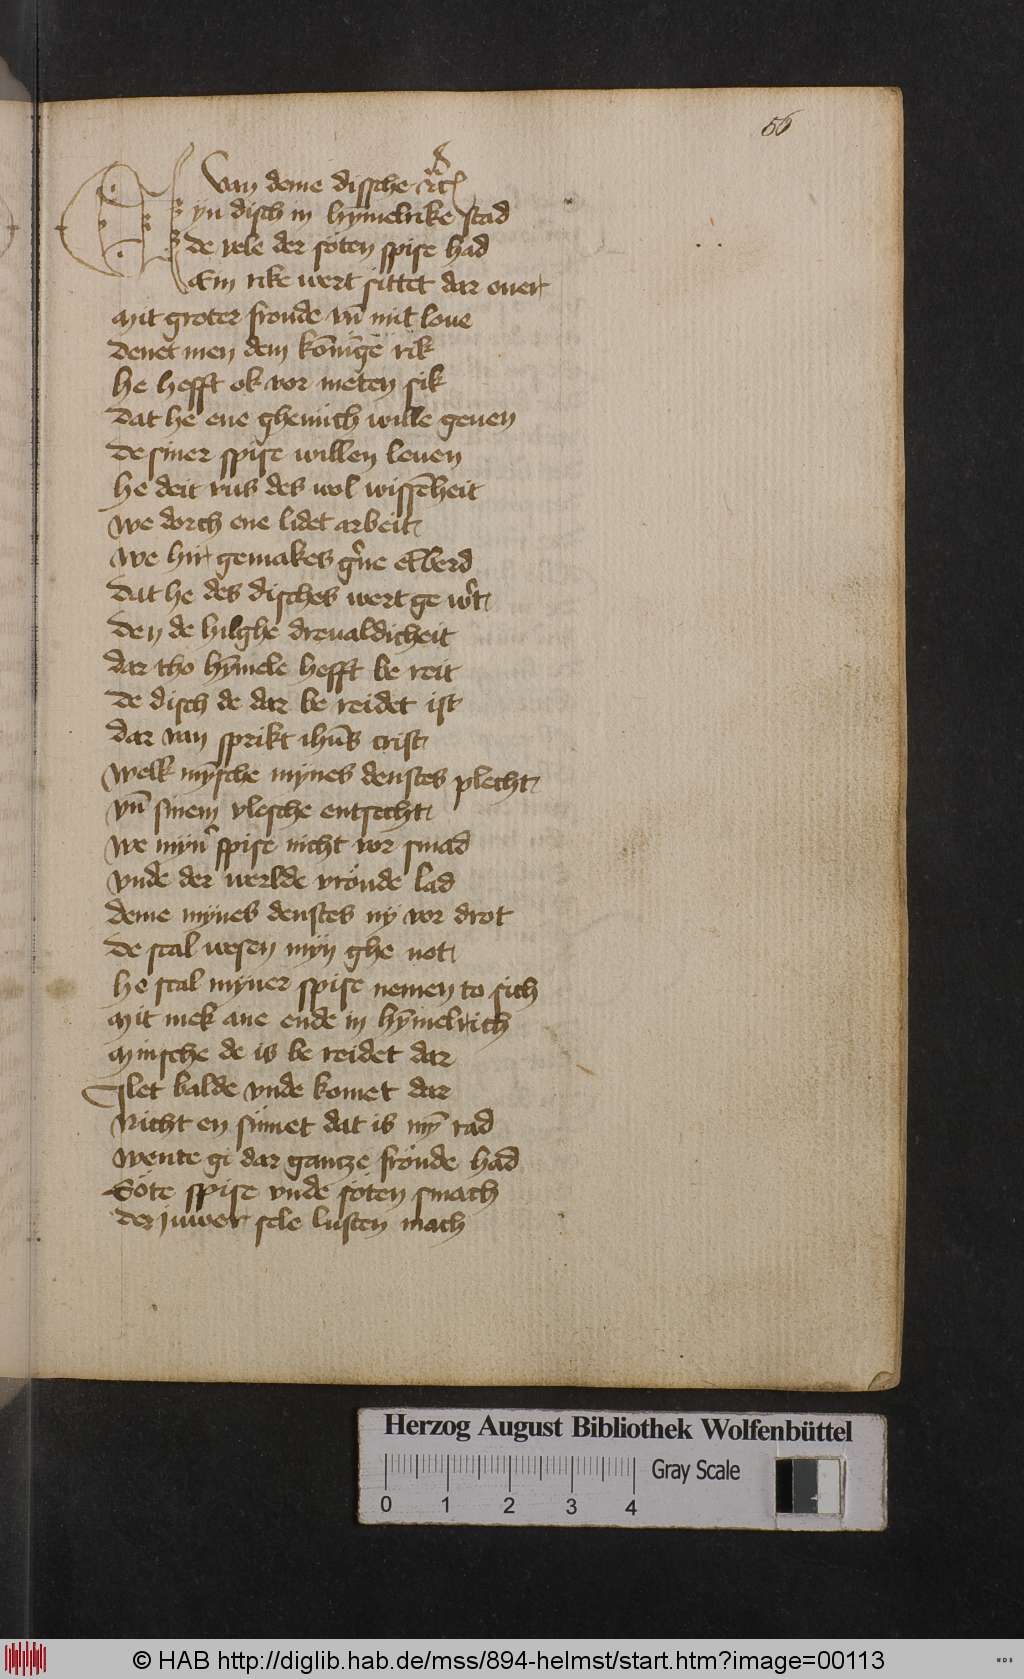 56
Van deme dissche
Eyn disch in hȳmelrike stad
de vele der söten spise had
Ein rike wert sittet dar ouer
Mit groter froude vn̄ mit loue
denet men dem kōnīge rik
he hefft ok vor meten sik
dat he eue ghemich wille geuen
de siner spise willen leuen
he deit vns des wol wissēheit
we dorch ene lidet arbeit
we hir gemakes gꝰne
dat he des disches wert ge wꝰt
den de hilghe dreualdicheit
dar tho hȳmele hefft be reit
de disch de dar be reidet ist
dar van sprikt ihūs crist
welk mȳsche mynes denstes plecht
vn̄ sinem vlesche entsecht
we mynꝰ spise nicht vor smad
vnde der werlde vröude lad
deme mynes denstes ny vor drot
de scal wesen myn ghe not
he scal myner spise nemen to sich
Mit mek ane ende in hȳmelrich
Minsche de is be reidet dar
Ilet balde vnde komet dar
Nicht en sümet dat is mȳ rad
wente gi dar gantze fröude had
Söte spise vnde söten smach
der juwer sele lusten mach
Herzog August Bibliothek Wolfenbüttel
Gray Scale
0 1 2 3 4
© HAB http://diglib.hab.de/mss/894-helmst/start.htm?image=00113